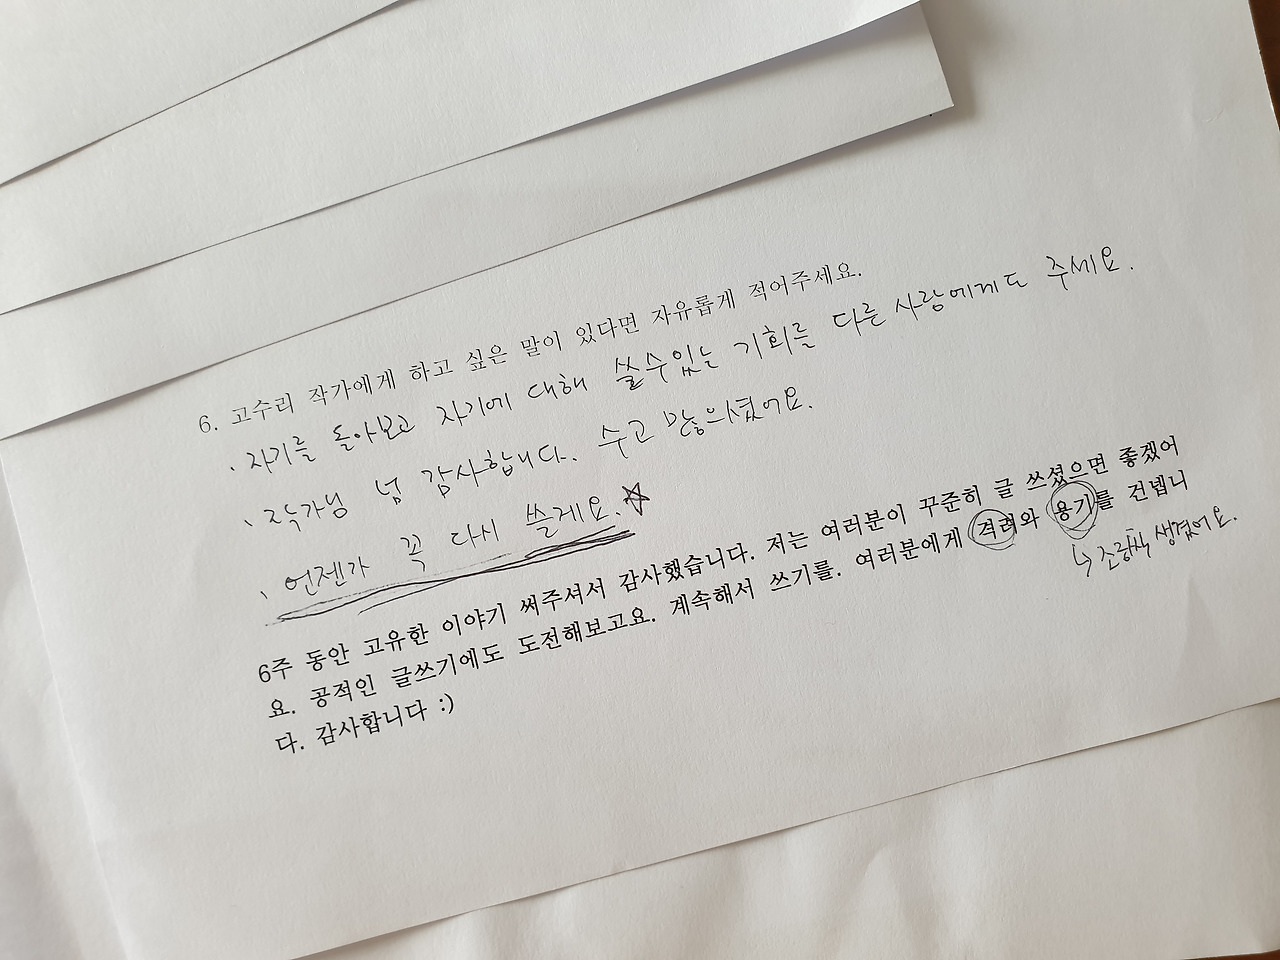 6. 고수리 작가에게 하고 싶은 말이 있다면 자유롭게 적어주세요.
· 자기를 돌아보고 자기에 대해 쓸수있는 기회를 다른 사람에게도 주세요.
· 작가님 넘 감사합니다. 수고 많으셨어요.
· 언젠가 꼭 다시 쓸게요.☆
6주 동안 고유한 이야기 써주셔서 감사했습니다. 저는 여러분이 꾸준히 글 쓰셨으면 좋겠어
요. 공적인 글쓰기에도 도전해보고요. 계속해서 쓰기를. 여러분에게 격려와 용기를 건넵니
↳ 조금씩 생겼어요.
다. 감사합니다 :)